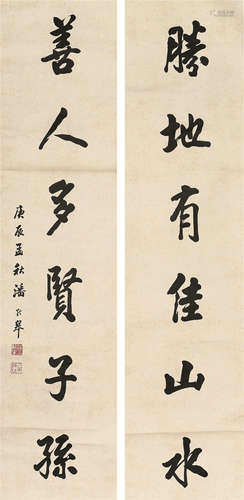 勝地有佳山水
善人多賢子孫
庚辰孟秋潘飞翠